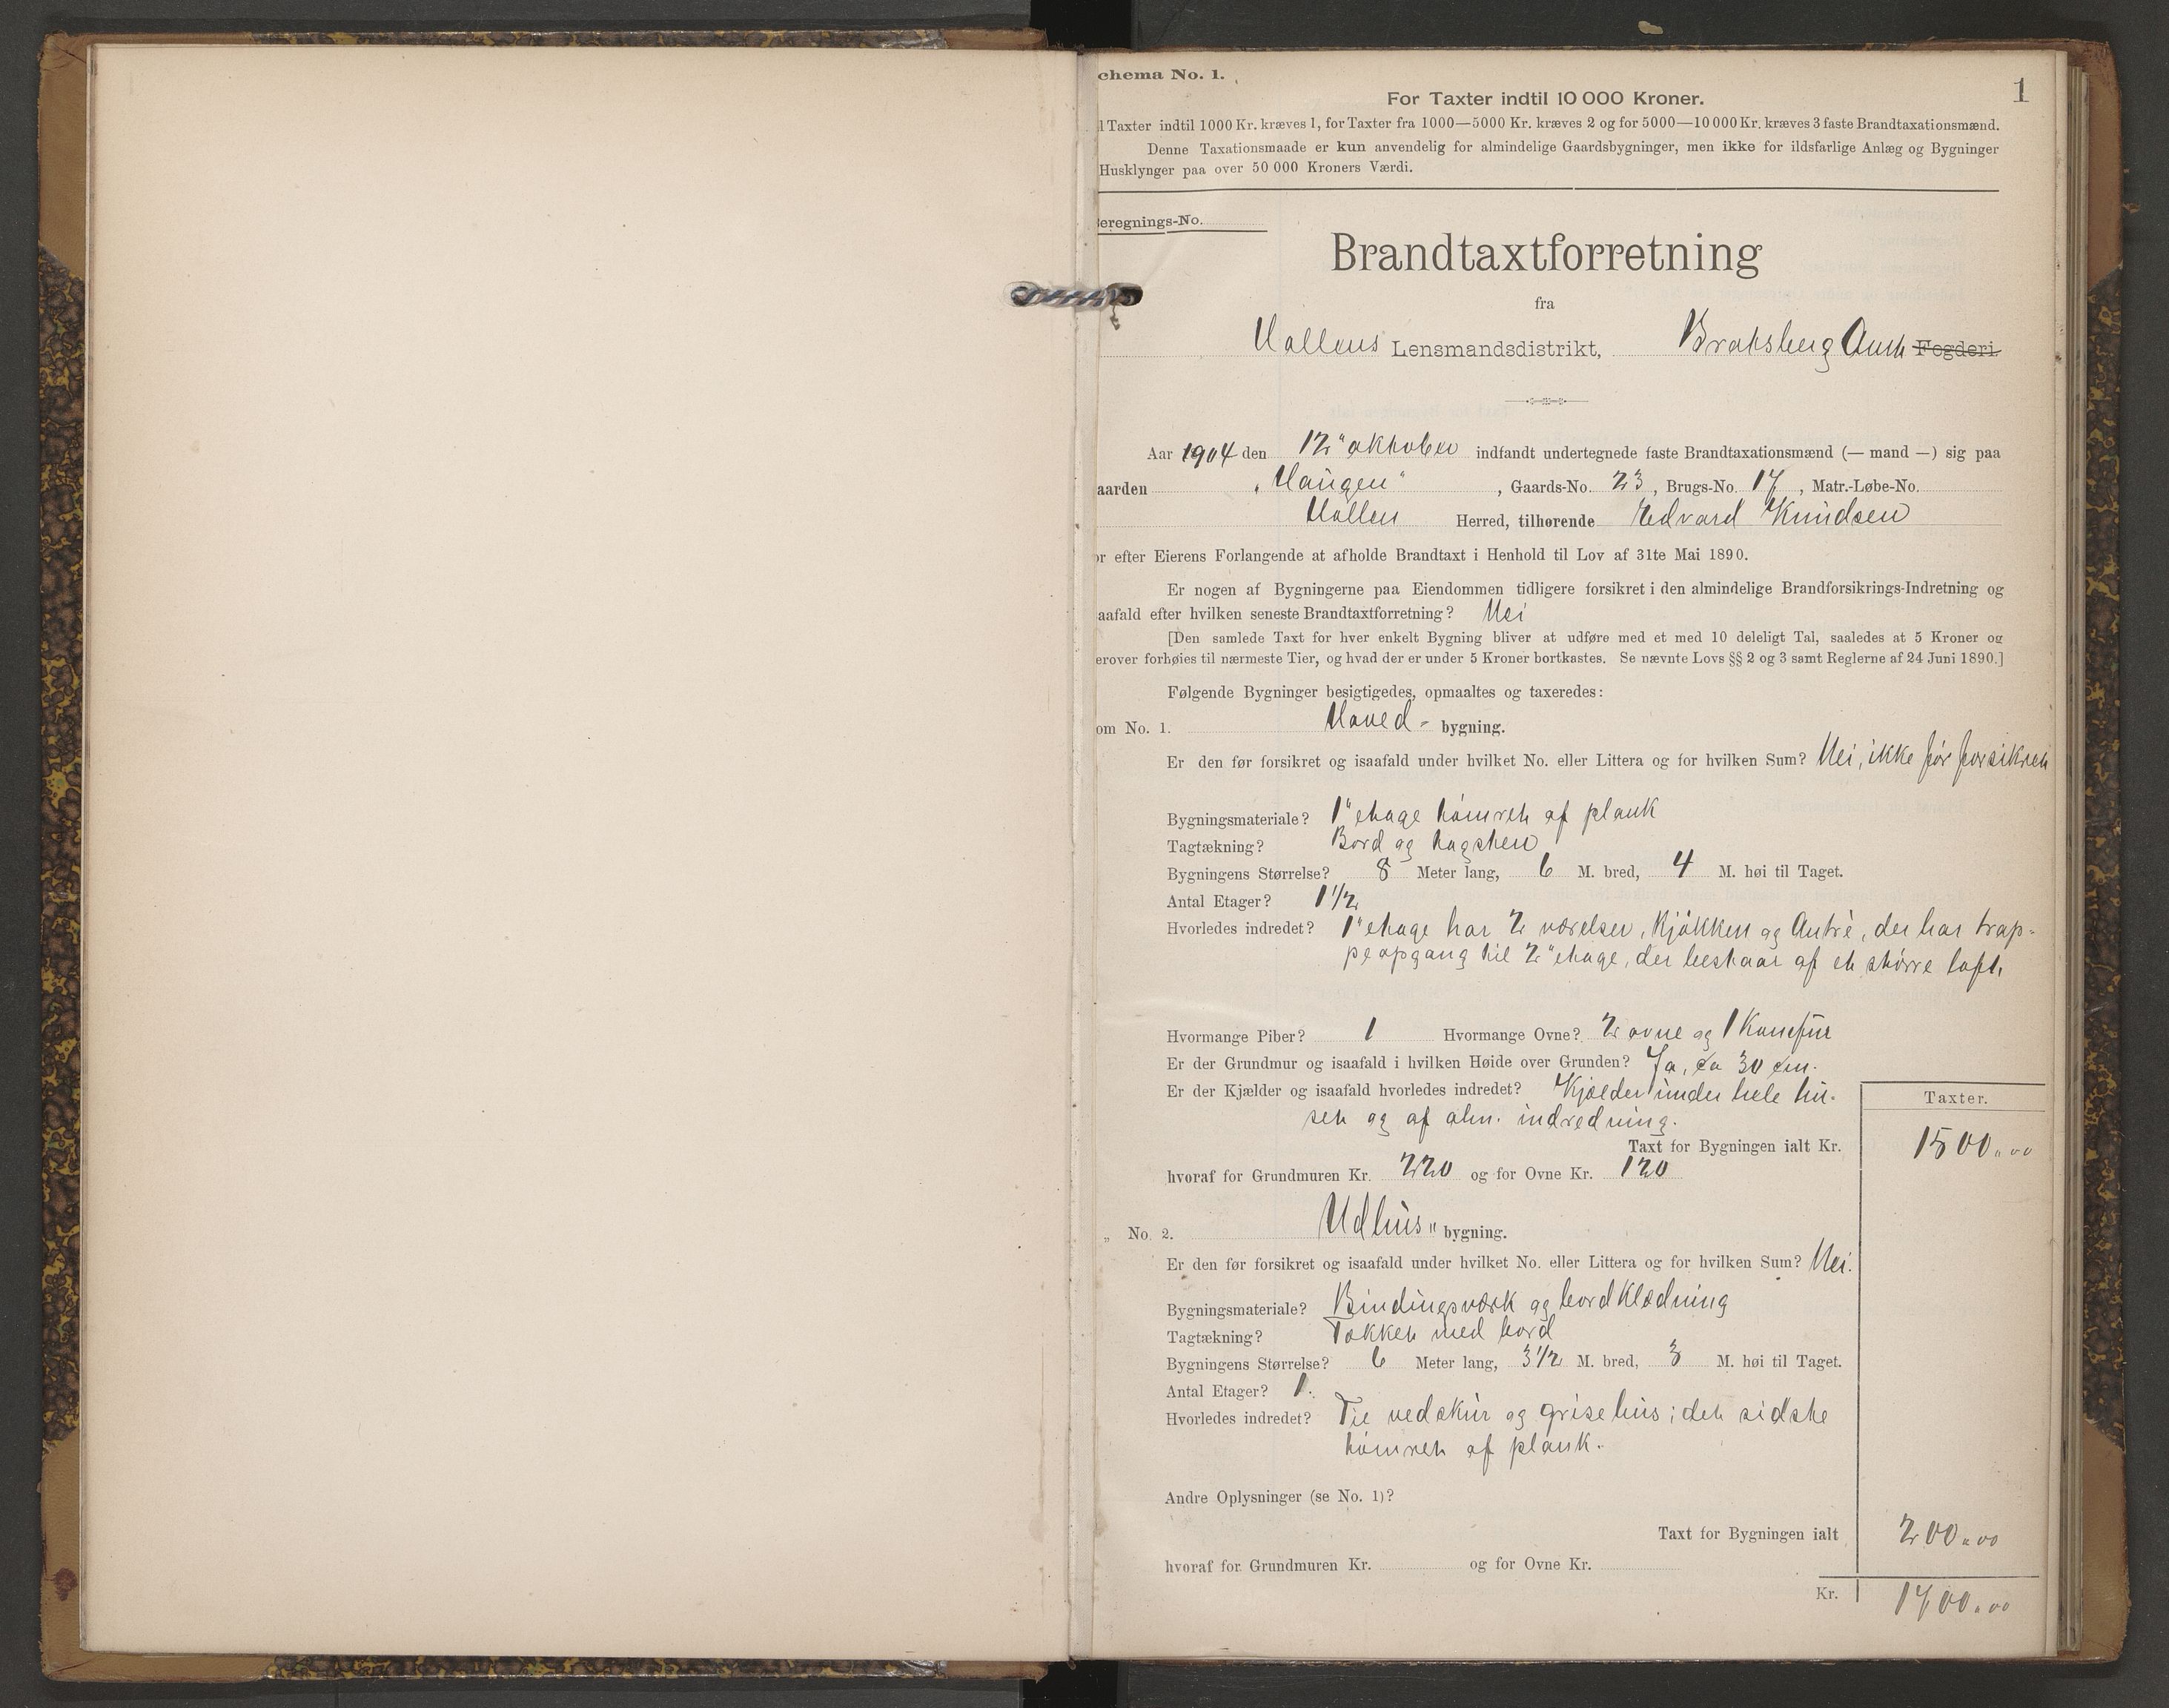 chema No. 1.
1
For Taxter indtil 10 000 Kroner.
l Taxter indtil 1000 Kr. kræves 1, for Taxter fra 1000—5000 Kr. kræves 2 og for 5000—10 000 Kr. kræves 3 faste Brandtaxationsmænd.
Denne Taxationsmaade er kun anvendelig for almindelige Gaardsbygninger, men ikke for ildsfarlige Anlæg og Bygninger
Husklynger paa over 50 000 Kroners Værdi.
Beregnings-No.
Brandtaxtforretning
fra
Hollens Lensmandsdistrikt, Bratsberg Amt Fogderi
Aar 1904 den 12" oktober indfandt undertegnede faste Brandtaxationsmænd (— mand —) sig paa
aarden „Haugen" , Gaards-No. 23, Brugs-No. 17, Matr.-Løbe-No.
Hollen Herred, tilhørende Edvard Knudsen
or efter Eierens Forlangende at afholde Brandtaxt i Henhold til Lov af 31te Mai 1890.
Er nogen af Bygningerne paa Eiendommen tidligere forsikret i den almindelige Brandforsikrings-Indretning og
aafald efter hvilken seneste Brandtaxtforretning? Nei
[Den samlede Taxt for hver enkelt Bygning bliver at udføre med et med 10 deleligt Tal, saaledes at 5 Kroner og
erover forhøies til nærmeste Tier, og hvad der er under 5 Kroner bortkastes. Se nævnte Lovs §§ 2 og 3 samt Reglerne af 24 Juni 1890.]
Følgende Bygninger besigtigedes, opmaaltes og taxeredes:
om No. 1. Hoved- bygning.
Er den før forsikret og isaafald under hvilket No. eller Littera og for hvilken Sum? Nei, ikke før forsikret
Bygningsmateriale? 1" etage tømret af plank
Tagtækning? Bord og tagsten
Bygningens Størrelse? 8 Meter lang, 6 M. bred, 4 M. høi til Taget.
Antal Etager? 1 1/2
Hvorledes indredet? 1" etage har 2 værelser, Kjøkken og Antrè, der har trap-
peopgang til 2" etage, der bestaar af et større loft,
Hvormange Piber? 1 Hvormange Ovne? 2 ovne og 1 Komfur
Er der Grundmur og isaafald i hvilken Høide over Grunden? Ja, ca 30 cm.
Er der Kjælder og isaafald hvorledes indredet? Kjælder under hele hu-
set og af alm. indredning.
Taxter.
Taxt for Bygningen ialt Kr. 1500,,00
hvoraf for Grundmuren Kr. 220 og for Ovne Kr. 120
„ No. 2. Udhus" bygning.
Er den før forsikret og isaafald under hvilket No. eller Littera og for hvilken Sum? Nei.
Bygningsmateriale? Bindingsværk og bordklædning
Tagtækning? Tækket med bord
Bygningens Størrelse? 6 Meter lang, 3 1/2 M. bred, 3 M. høi til Taget.
Antal Etager? 1.
Hvorledes indredet? Til vedskur og grisehus; det sidste
tømret af plank.
Andre Oplysninger (se No. 1)?
Taxt for Bygningen ialt 200,,00
hvoraf for Grundmuren Kr. og for Ovne Kr.
Kr. 1700,,00